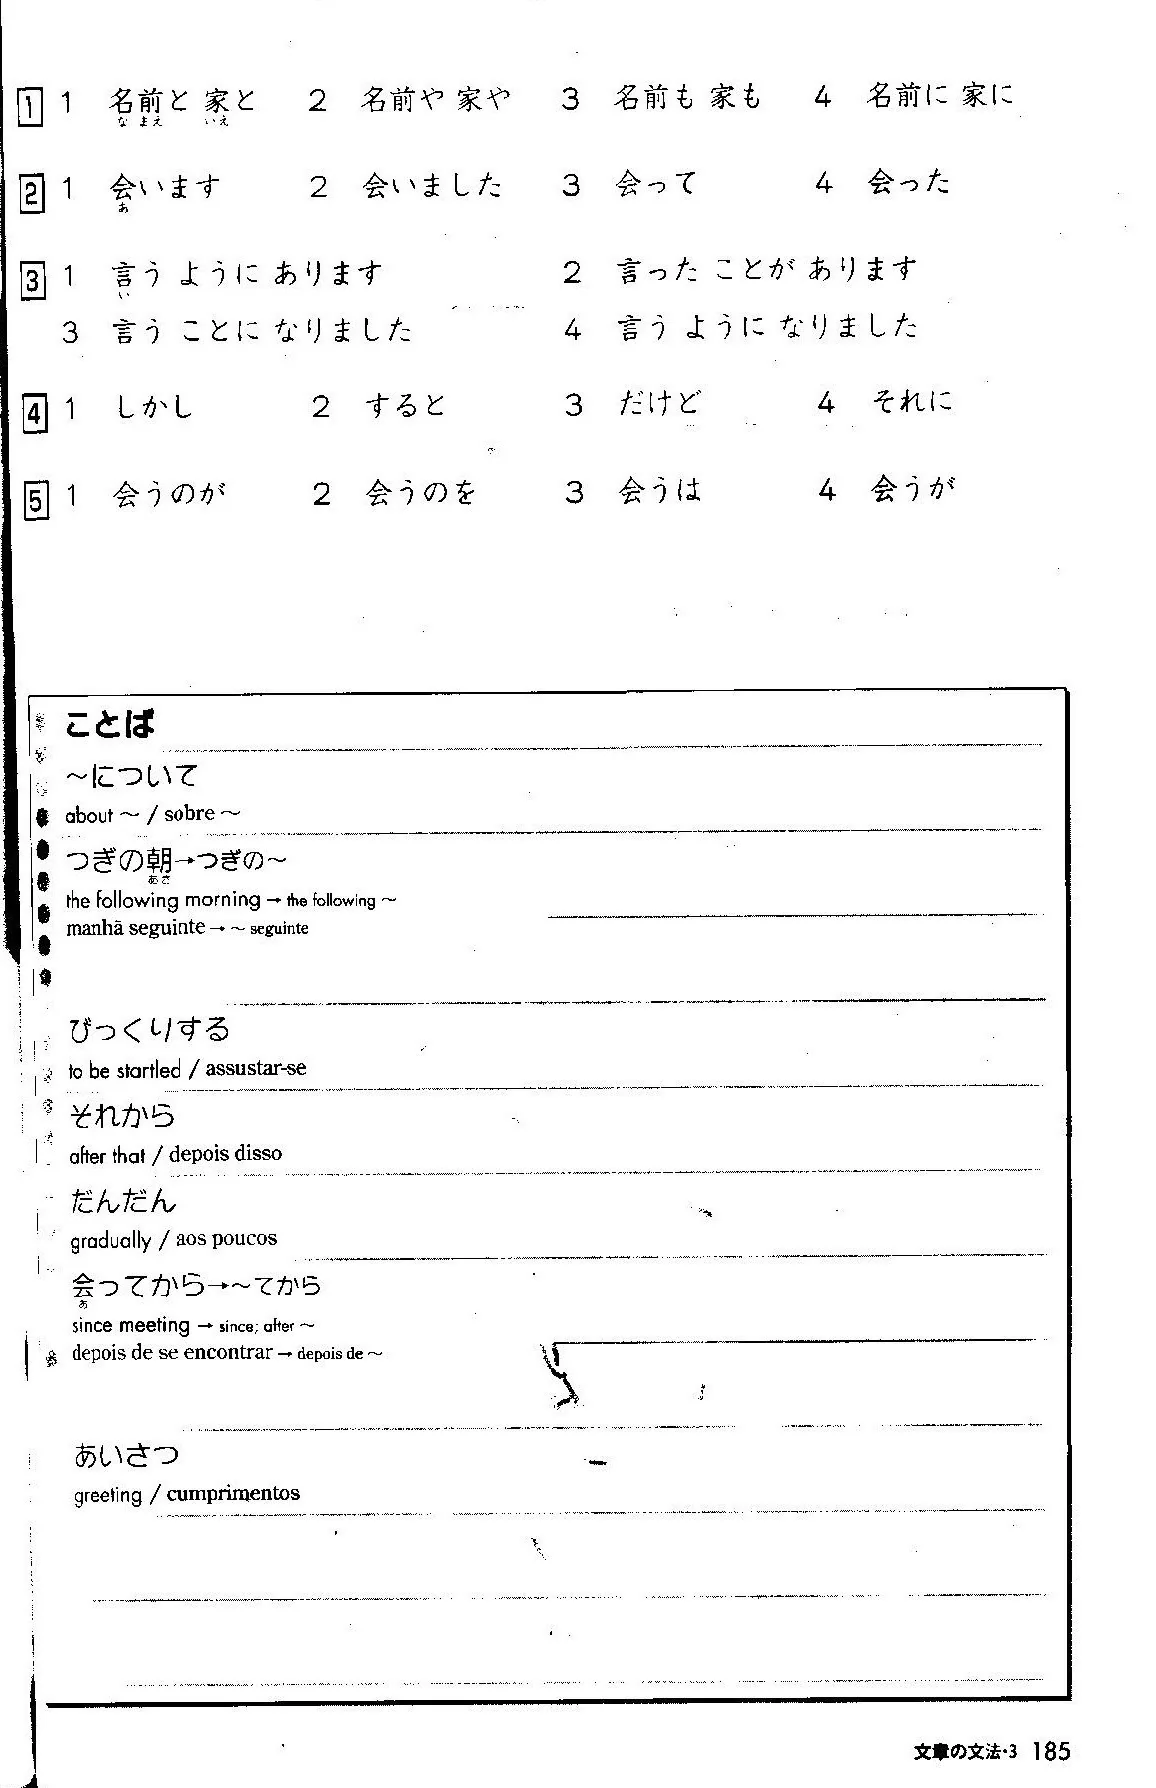 1 1 名前と 家と 2 名前や 家や 3 名前も 家も 4 名前に 家に
なまえ いえ
2 1 会います 2 会いました 3 会って 4 会った
あ
3 1 言う ように あります 2 言った ことが あります
い
3 言う ことに なりました 4 言う ように なりました
4 1 しかし 2 すると 3 だけど 4 それに
5 1 会うのが 2 会うのを 3 会うは 4 会うが
ことば
～について
about ～ / sobre ～
つぎの朝→つぎの～
あさ
the following morning → the following ～
manhã seguinte → ～ seguinte
びっくりする
to be startled / assustar-se
それから
after that / depois disso
だんだん
gradually / aos poucos
会ってから→～てから
あ
since meeting → since; after ～
depois de se encontrar → depois de ～
あいさつ
greeting / cumprimentos
文章の文法・3 185